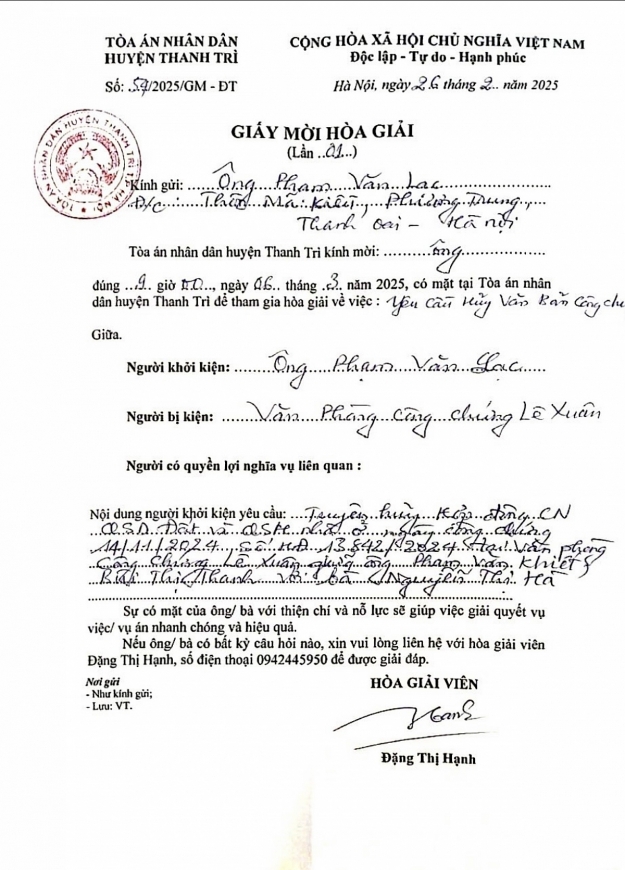 TÒA ÁN NHÂN DÂN
HUYỆN THANH TRÌ
Số: 54/2025/GM - ĐT
CỘNG HÒA XÃ HỘI CHỦ NGHĨA VIỆT NAM
Độc lập - Tự do - Hạnh phúc
Hà Nội, ngày 26 tháng 2.. năm 2025
GIẤY MỜI HÒA GIẢI
(Lần ..01...)
TÒA ÁN NHÂN DÂN HUYỆN THANH TRÌ T. HÀ NỘI
Kính gửi: Ông Phạm Văn Lạc
Đ/c : Thôn Mã Kiều, Phương Trung,
Thanh Oai - Hà Nội
Tòa án nhân dân huyện Thanh Trì kính mời: Ông
đúng ..9.. giờ 00.., ngày 06.. tháng .3. năm 2025, có mặt tại Tòa án nhân
dân huyện Thanh Trì để tham gia hòa giải về việc : Yêu Cầu Hủy Văn Bản Công chứ
Giữa.
Người khởi kiện: Ông Phạm Văn Lạc
Người bị kiện: Văn Phòng công chứng Lê Xuân
Người có quyền lợi nghĩa vụ liên quan :
Nội dung người khởi kiện yêu cầu: Tuyên hủy Hợp đồng CN
QSD Đất và QSH nhà ở ngày công chứng
14/11/2024, số HĐ 13842/2024 tại Văn phòng
Công Chứng Lê Xuân giữa ông Phạm Văn Khiết
Bùi Thị Thanh Với bà Nguyễn Thị Hà
Sự có mặt của ông/ bà với thiện chí và nỗ lực sẽ giúp việc giải quyết vụ
việc/ vụ án nhanh chóng và hiệu quả.
Nếu ông/ bà có bất kỳ câu hỏi nào, xin vui lòng liên hệ với hòa giải viên
Đặng Thị Hạnh, số điện thoại 0942445950 để được giải đáp.
Nơi gửi
- Như kính gửi;
- Lưu: VT.
HÒA GIẢI VIÊN
Hạnh
Đặng Thị Hạnh